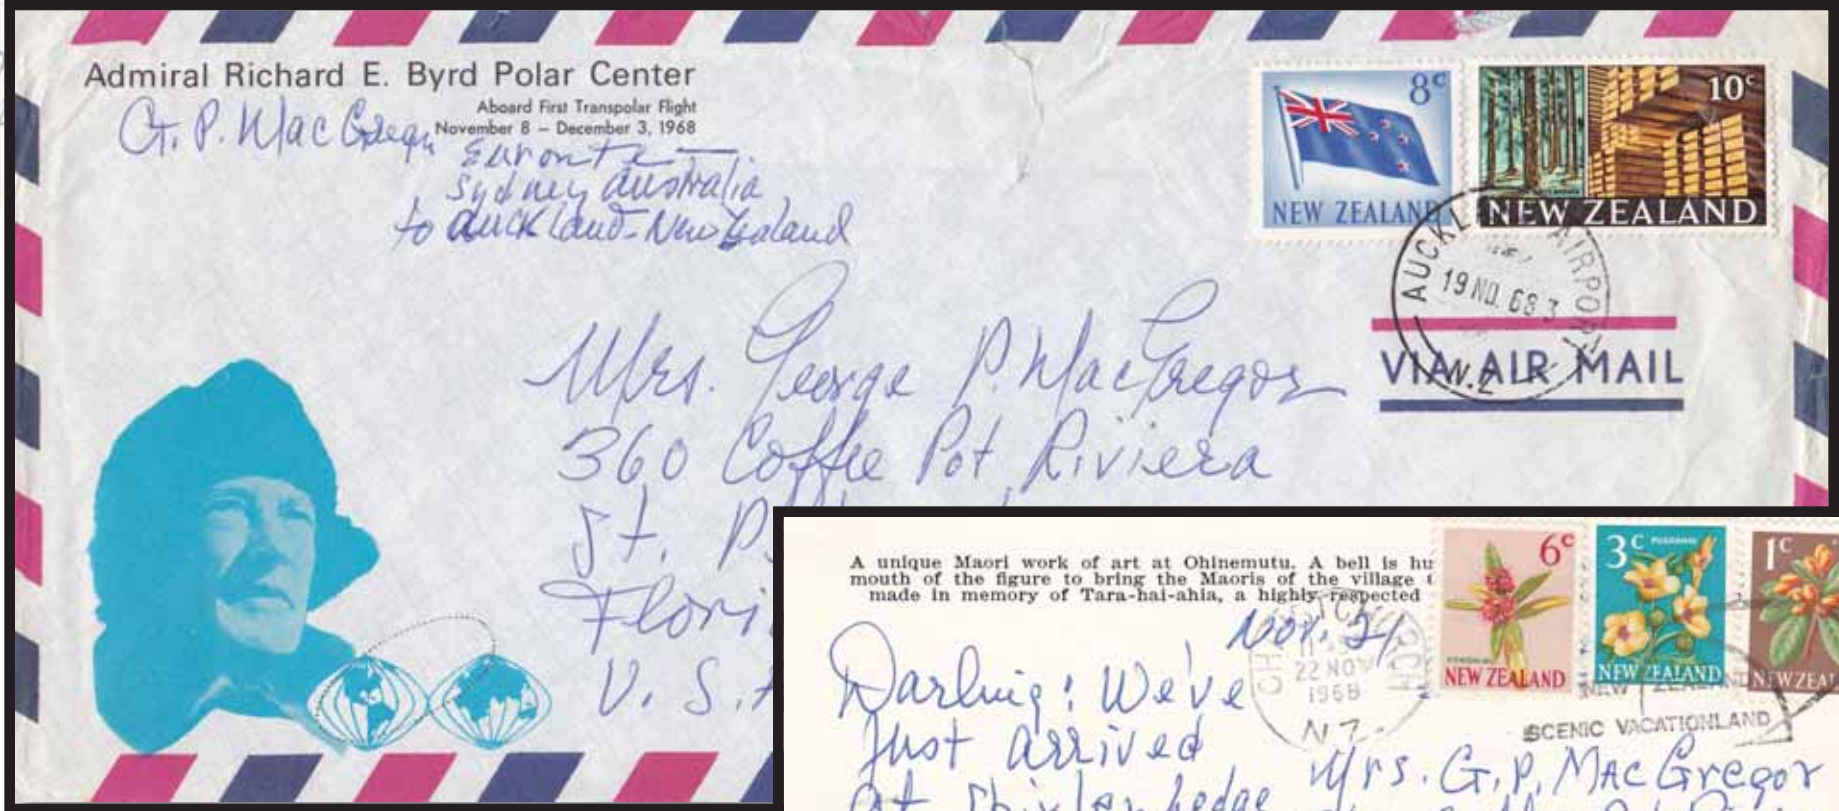 Admiral Richard E. Byrd Polar Center
Aboard First Transpolar Flight
November 8 – December 3, 1968
G. P. MacGregor
Enroute
Sydney Australia
to Auckland - New Zealand
8c
NEW ZEALAND
10c
NEW ZEALAND
AUCKL AIRPORT
19 NO. 68 3
N.Z.
VIA AIR MAIL
Mrs. George P. MacGregor
360 Coffee Pot Riviera
St. P
Flori
U. S. A
A unique Maori work of art at Ohinemutu. A bell is hu
mouth of the figure to bring the Maoris of the village
made in memory of Tara-hai-ahia, a highly respected
6c
NEW ZEALAND
3c
NEW ZEALAND
1c
NEW ZEAL
CHRISTCHURCH
22 NOV
1968
N.Z.
NEW ZEALAND
SCENIC VACATIONLAND
Nov. 21
Darling: We've
Just arrived
at
Mrs. G. P. MacGregor